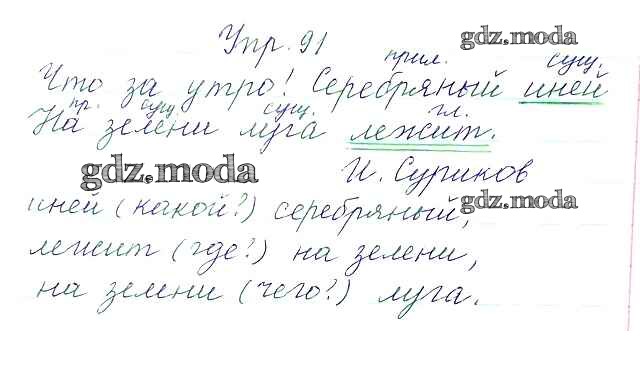 Упр. 91
gdz.moda
прил. сущ.
Что за утро! Серебряный иней
пр. сущ. сущ. гл.
На зелени луга лежит.
gdz.moda
И. Суриков
иней (какой?) серебряный,
gdz.moda
лежит (где?) на зелени,
на зелени (чего?) луга.